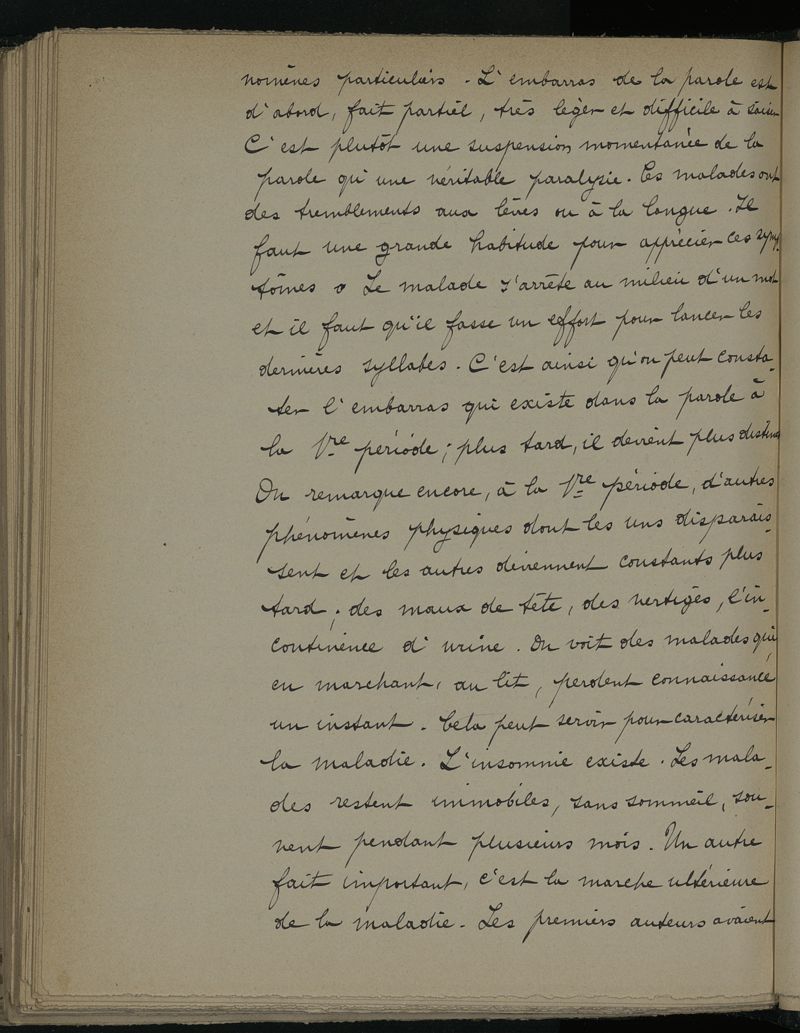 nomènes particuliers. L'embarras de la parole est
d'abord, fait partiel, très léger et difficile à saisir
C'est plutôt une suspension momentanée de la
parole qu'une véritable paralysie. Ces malades ont
des tremblements aux lèvres ou à la langue. Il
faut une grande habitude pour apprécier ces symp-
tômes. Le malade s'arrête au milieu d'un mot
et il faut qu'il fasse un effort pour lancer les
dernières syllabes. C'est ainsi qu'on peut consta-
ter l'embarras qui existe dans la parole à
la 1re période; plus tard, il devient plus distinct
On remarque encore, à la 1re période, d'autres
phénomènes physiques dont les uns disparais-
sent et les autres deviennent constants plus
tard; des maux de tête, des vertiges, l'in-
continence d'urine. On voit des malades qui,
en marchant, au lit, perdent connaissance
un instant. Cela peut servir pour caractériser
la maladie. L'insomnie existe. Les mala-
des restent immobiles, sans sommeil, sou-
vent pendant plusieurs mois. Un autre
fait important, c'est la marche ultérieure
de la maladie. Les premiers auteurs avaient